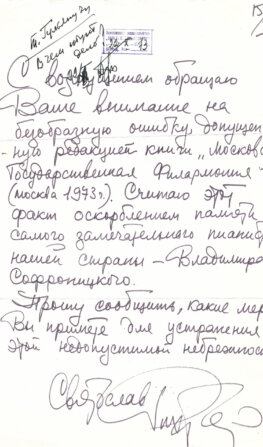 15
В чем тут
дело?
С возмущением обращаю
Ваше внимание на
безобразную ошибку, допущен
-ную редакцией книги „Московс
Государственная Филармония"
(москва 1973г.). Считаю этот
факт оскорблением памяти
самого замечательного пианис
нашей страны – Владимира
Софроницкого.
Прошу сообщить, какие мер
Вы примете для устранения
этой недопустимой небрежнос
Святослав